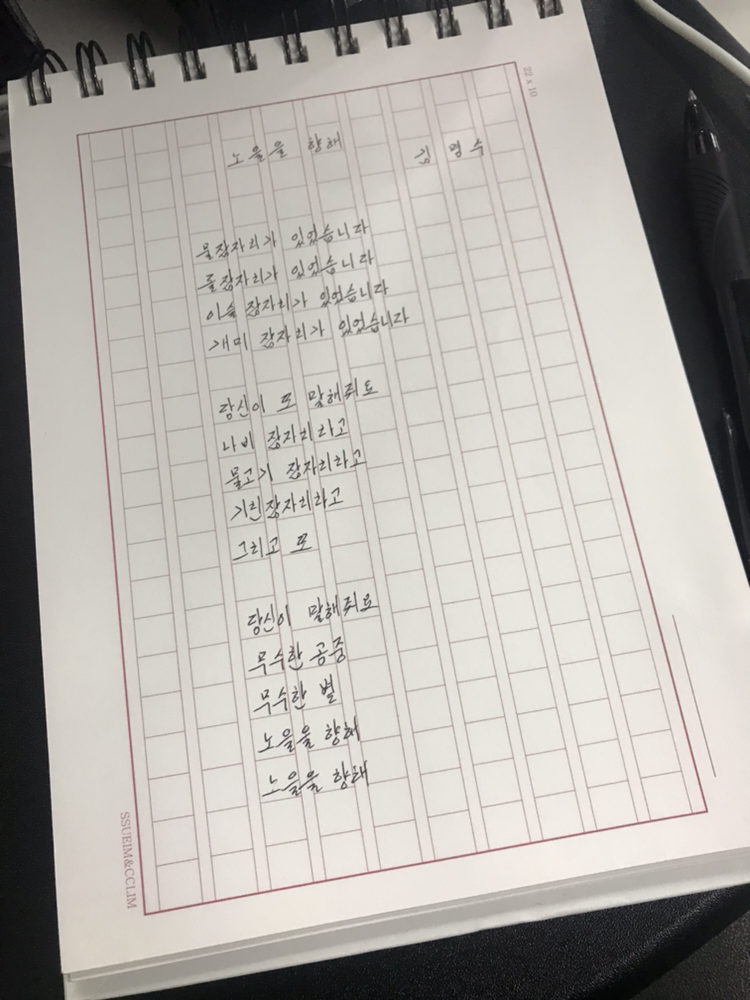 22 x 10
노을을 향해 김명수
물잠자리가 있었습니다
풀잠자리가 있었습니다
이슬 잠자리가 있었습니다
개미 잠자리가 있었습니다
당신이 또 말해줘요
나비 잠자리라고
물고기 잠자리라고
기린잠자리라고
그리고 또
당신이 말해줘요
무수한 공중
무수한 별
노을을 향해
노을을 향해
SSUEIM&CCLIM